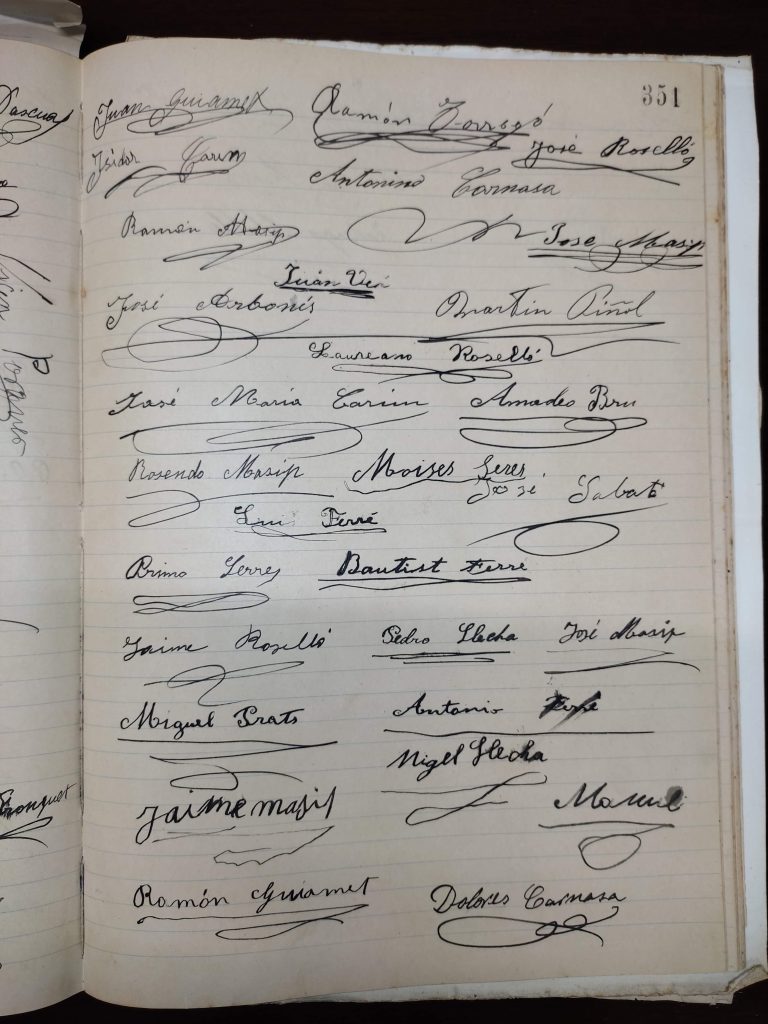 351
Juan Guiamet
Ramón Torregó
José Roselló
Isidor Carim
Antonino Carnasa
Ramón Masip
Jose Masip
Juán
José Arbonés
Martin Piñol
Laureano Roselló
José Maria Carim
Amadeo Bru
Rosendo Masip
Moises Seres
José Sabaté
Luis Ferré
Primo Serres
Bautist Ferre
Jaime Roselló
Pedro Llecha
José Masip
Miguel Prats
Antonio Ferré
Migel Llecha
Jaime masip
Ramón Guiamet
Dolores Carnasa